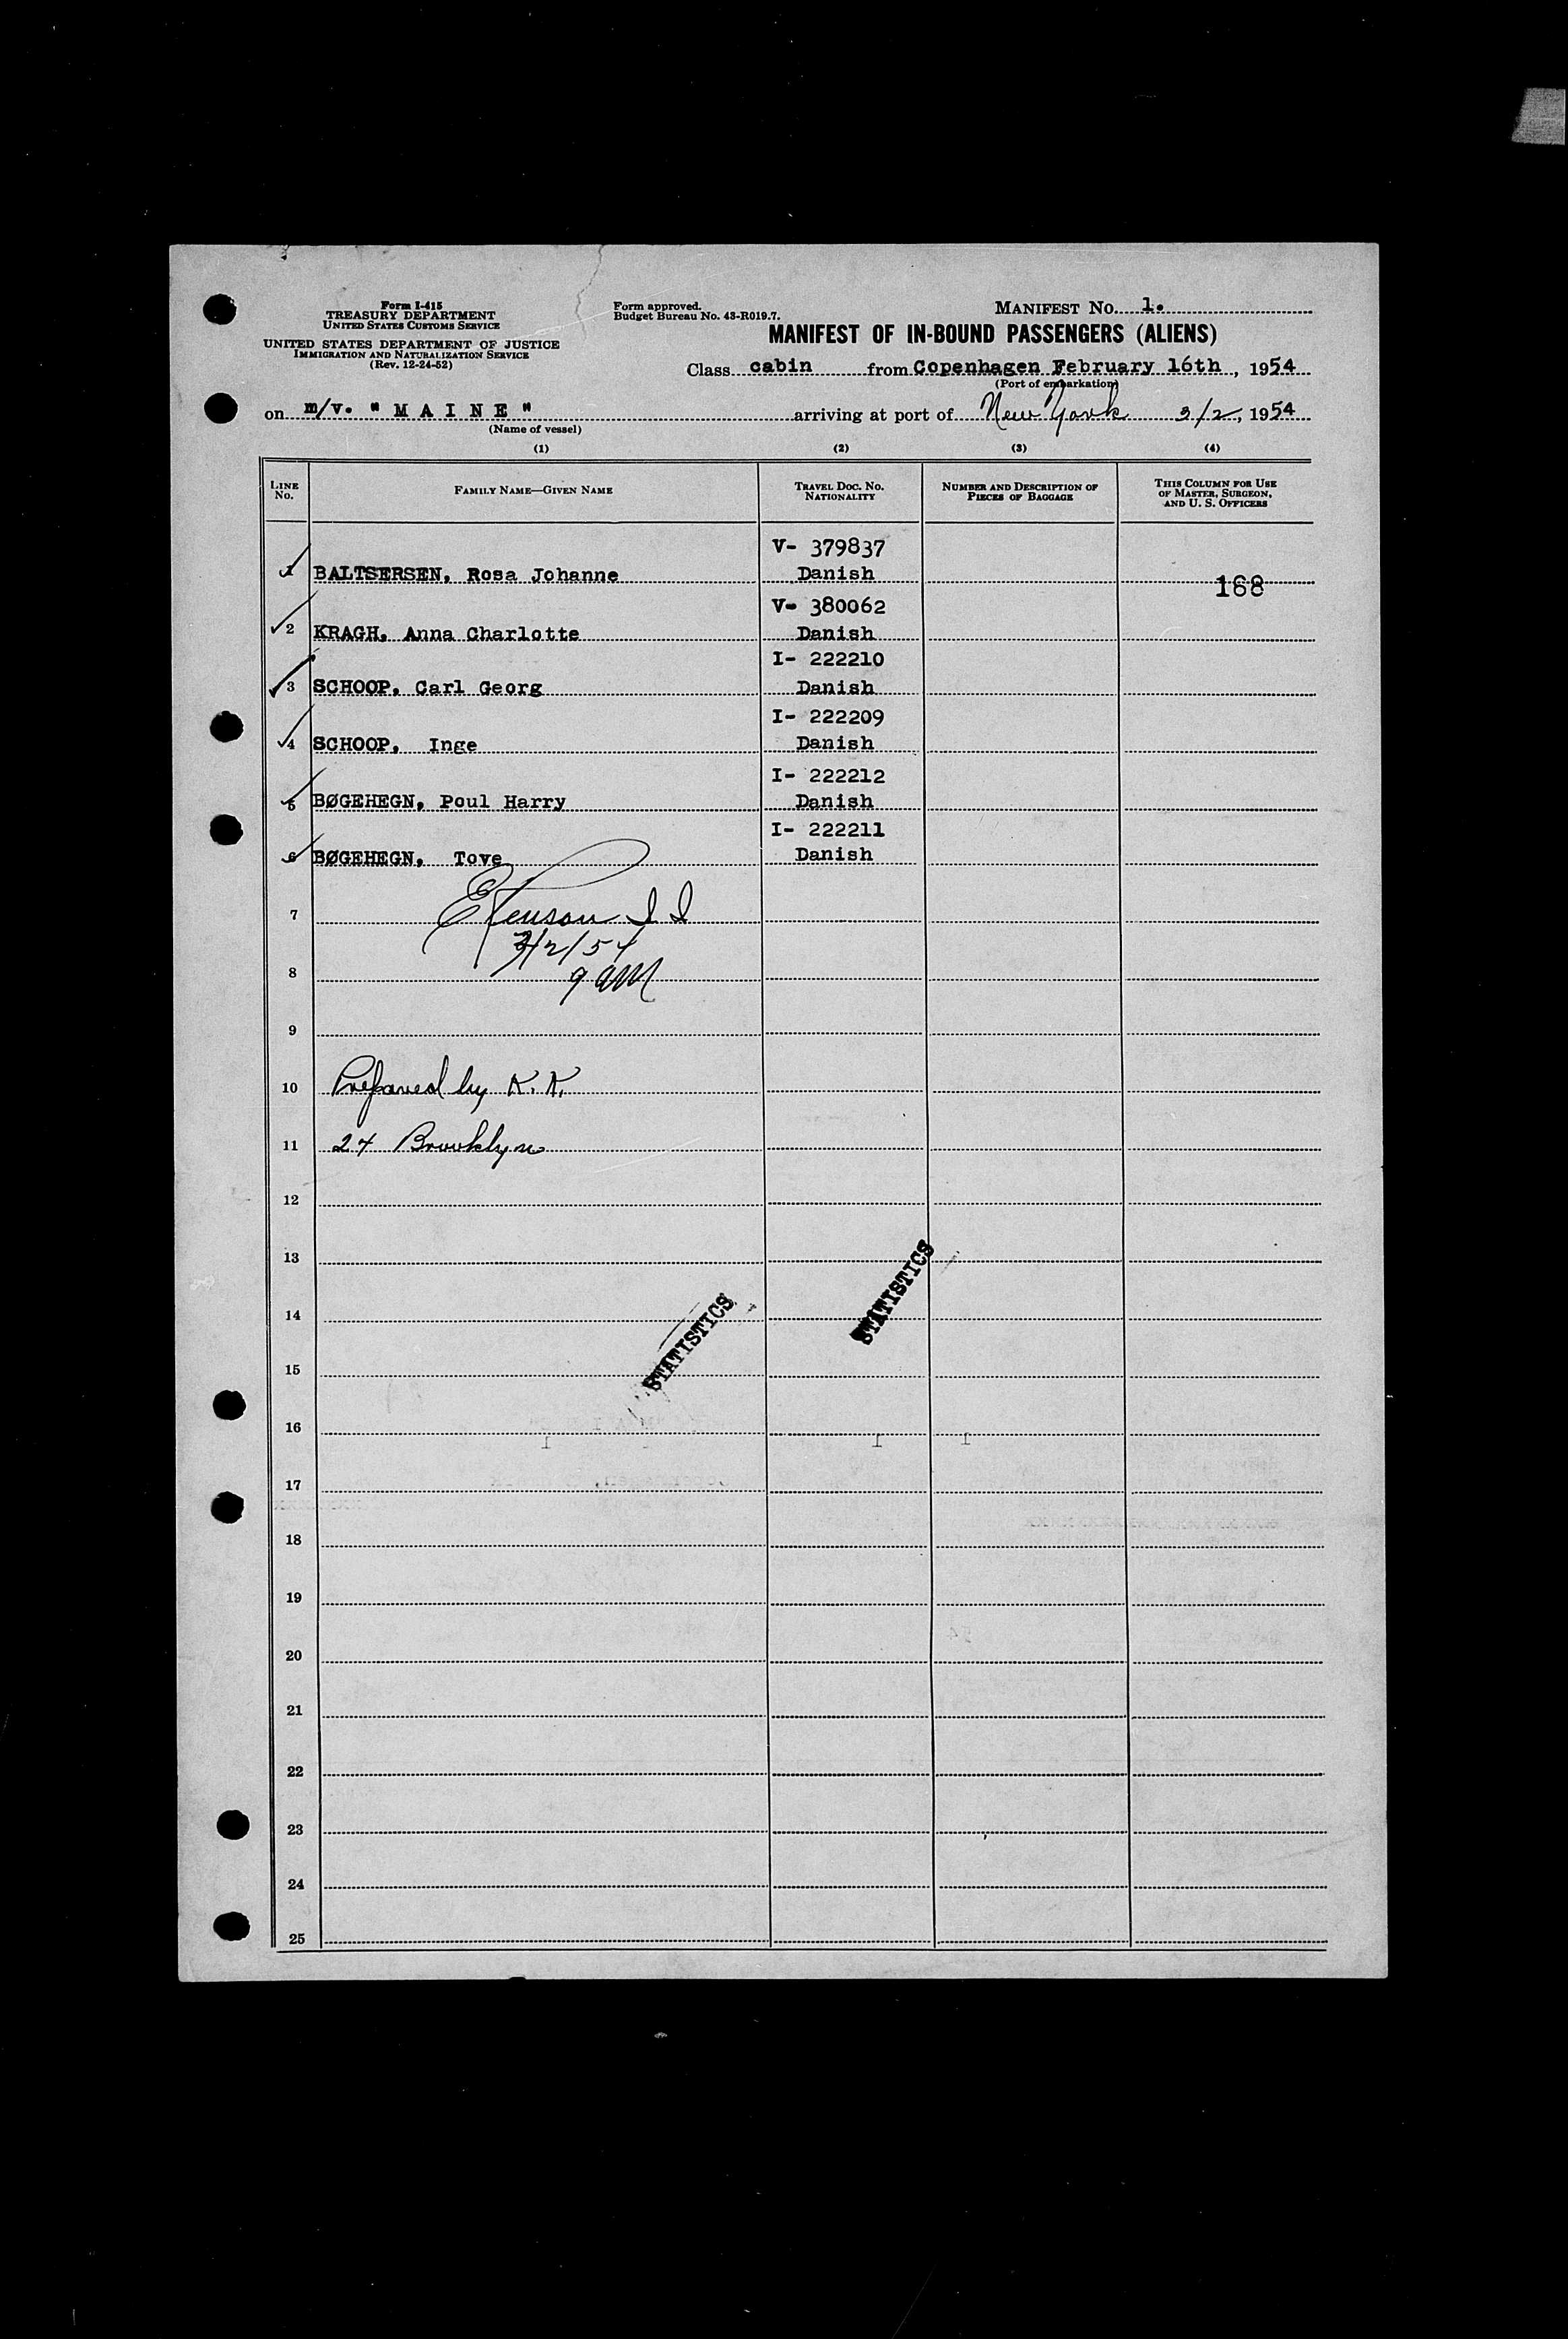 Form I-415
TREASURY DEPARTMENT
UNITED STATES CUSTOMS SERVICE
UNITED STATES DEPARTMENT OF JUSTICE
IMMIGRATION AND NATURALIZATION SERVICE
(Rev. 12-24-52)
Form approved.
Budget Bureau No. 43-R019.7.
MANIFEST NO. 1.
MANIFEST OF IN-BOUND PASSENGERS (ALIENS)
Class cabin from Copenhagen February 16th, 1954
(Port of embarkation)
on m/v. " M A I N E " arriving at port of New York 3/2, 1954
(Name of vessel)
(1) (2) (3) (4)
LINE No. FAMILY NAME—GIVEN NAME TRAVEL DOC. NO. NATIONALITY NUMBER AND DESCRIPTION OF PIECES OF BAGGAGE THIS COLUMN FOR USE OF MASTER, SURGEON, AND U. S. OFFICERS
V- 379837
1 BALTSERSEN, Rosa Johanne Danish 168
V- 380062
2 KRAGH, Anna Charlotte Danish
I- 222210
3 SCHOOP, Carl Georg Danish
I- 222209
4 SCHOOP, Inge Danish
I- 222212
5 BØGEHEGN, Poul Harry Danish
I- 222211
6 BØGEHEGN, Tove Danish
7
3/2/54
8 9 AM
9
10 Prepared by K. K.
11 24 Brooklyn
12
13
STATISTICS
14
STATISTICS
15
16
17
18
19
20
21
22
23
24
25